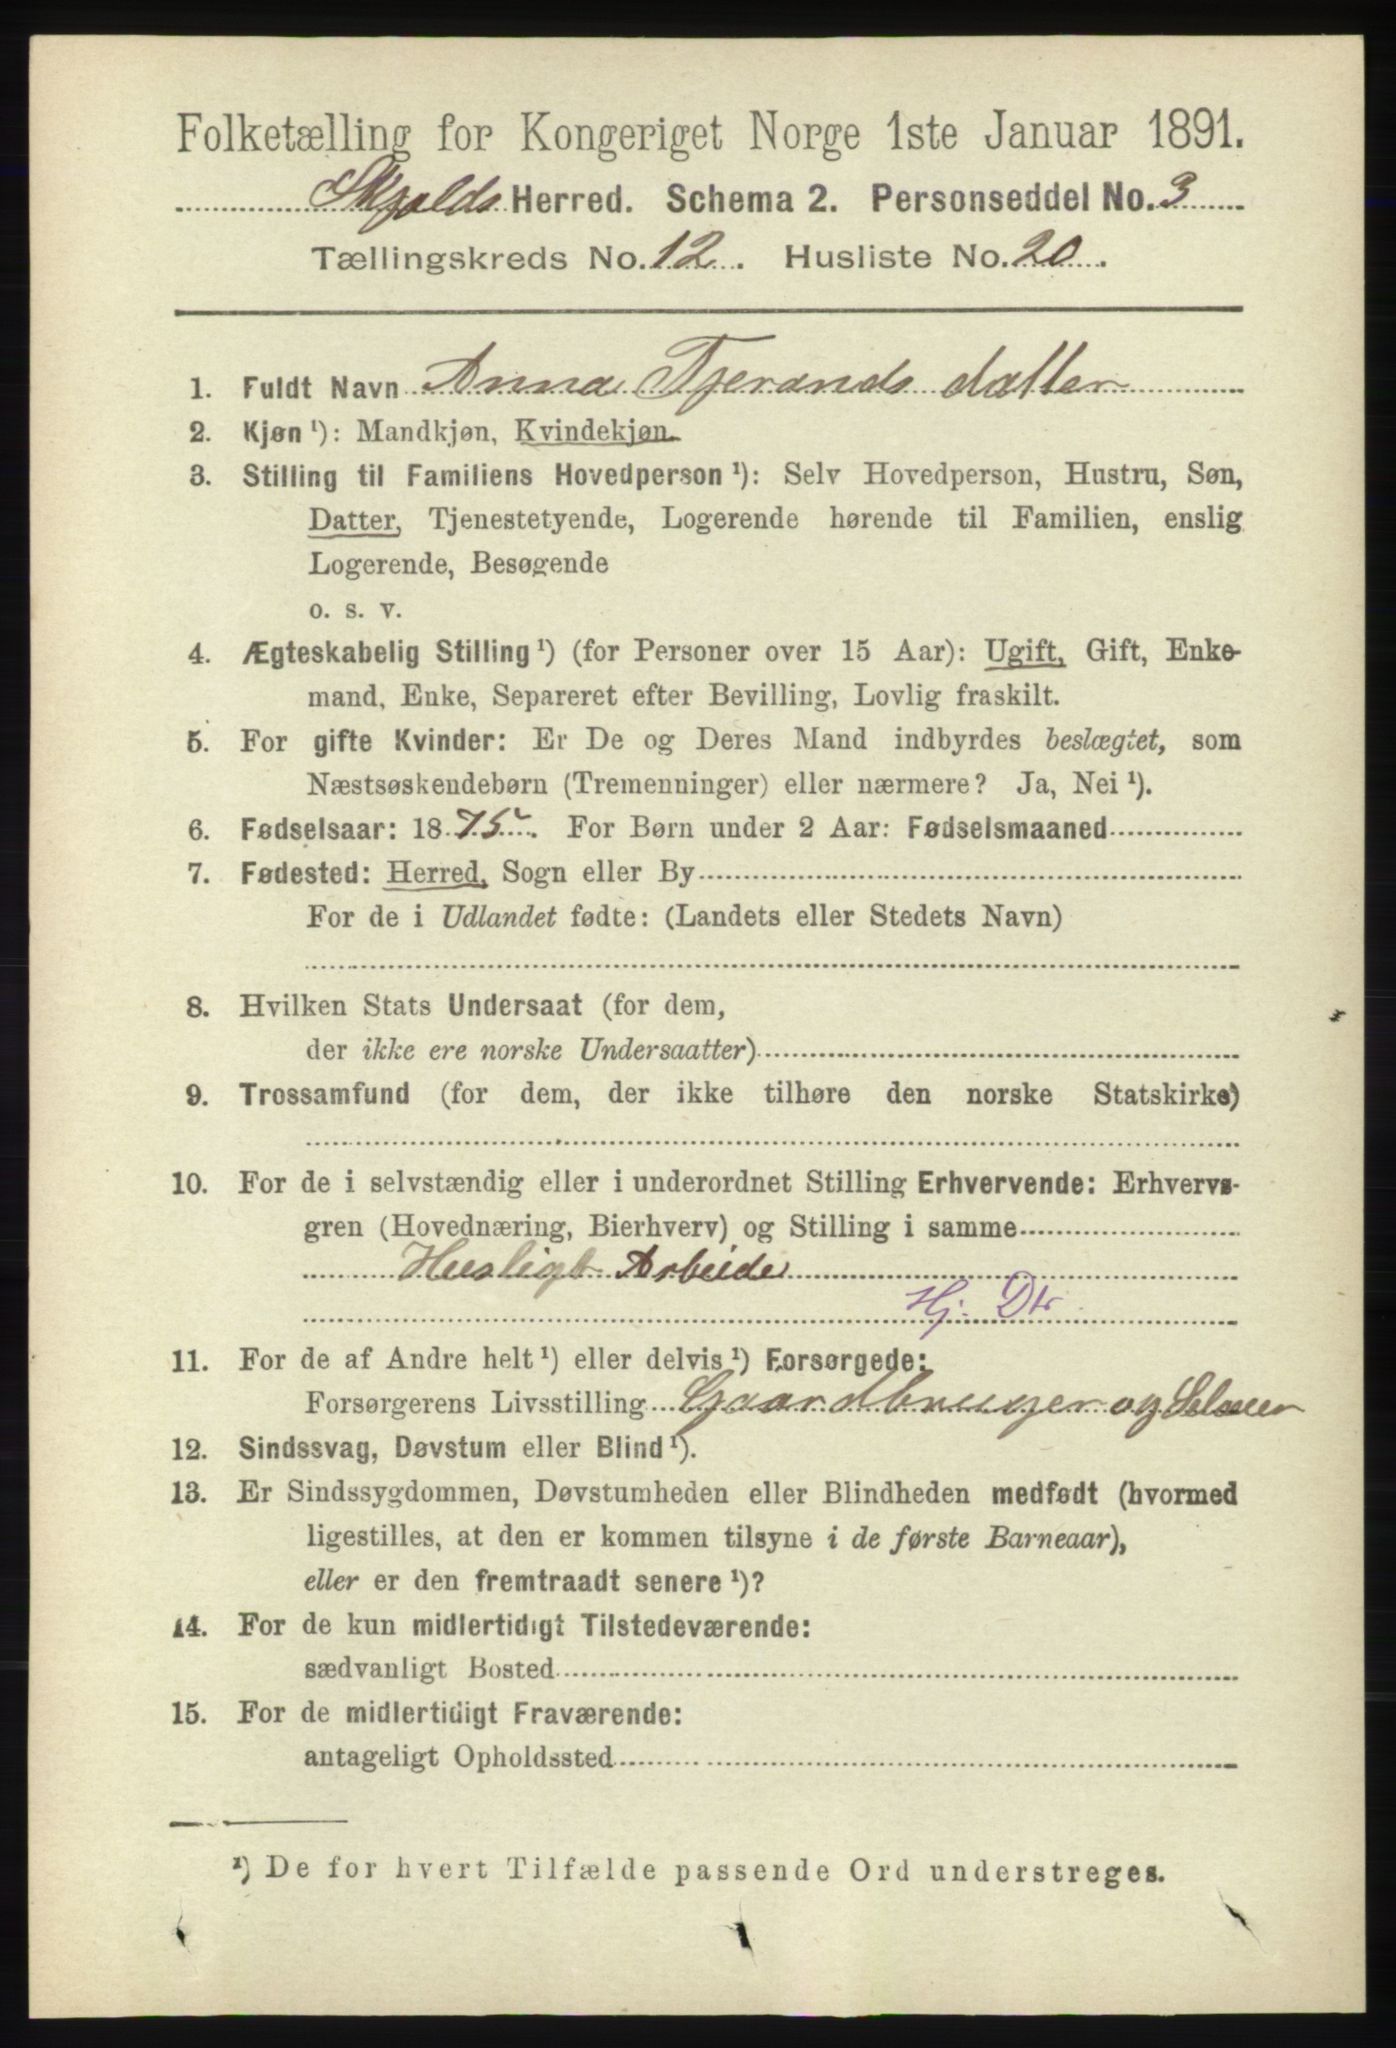 Folketælling for Kongeriget Norge 1ste Januar 1891.
Skjolds Herred. Schema 2. Personseddel No. 3
Tællingskreds No. 12. Husliste No. 20.
1. Fuldt Navn Anna Tjerands datter
2. Kjøn ¹): Mandkjøn, Kvindekjøn.
3. Stilling til Familiens Hovedperson ¹): Selv Hovedperson, Hustru, Søn,
Datter, Tjenestetyende, Logerende hørende til Familien, enslig
Logerende, Besøgende
o. s. v.
4. Ægteskabelig Stilling ¹) (for Personer over 15 Aar): Ugift, Gift, Enke-
mand, Enke, Separeret efter Bevilling, Lovlig fraskilt.
5. For gifte Kvinder: Er De og Deres Mand indbyrdes beslægtet, som
Næstsøskendebørn (Tremenninger) eller nærmere? Ja, Nei ¹).
6. Fødselsaar: 1875. For Børn under 2 Aar: Fødselsmaaned
7. Fødested: Herred, Sogn eller By
For de i Udlandet fødte: (Landets eller Stedets Navn)
8. Hvilken Stats Undersaat (for dem,
der ikke ere norske Undersaatter)
9. Trossamfund (for dem, der ikke tilhøre den norske Statskirke)
10. For de i selvstændig eller i underordnet Stilling Erhvervende: Erhvervs-
gren (Hovednæring, Bierhverv) og Stilling i samme
Husligt Arbeide
Hj. Dtr.
11. For de af Andre helt ¹) eller delvis ¹) Forsørgede:
Forsørgerens Livsstilling Gaardbruger og
12. Sindssvag, Døvstum eller Blind ¹).
13. Er Sindssygdommen, Døvstumheden eller Blindheden medfødt (hvormed
ligestilles, at den er kommen tilsyne i de første Barneaar),
eller er den fremtraadt senere ¹)?
14. For de kun midlertidigt Tilstedeværende:
sædvanligt Bosted
15. For de midlertidigt Fraværende:
antageligt Opholdssted
¹) De for hvert Tilfælde passende Ord understreges.